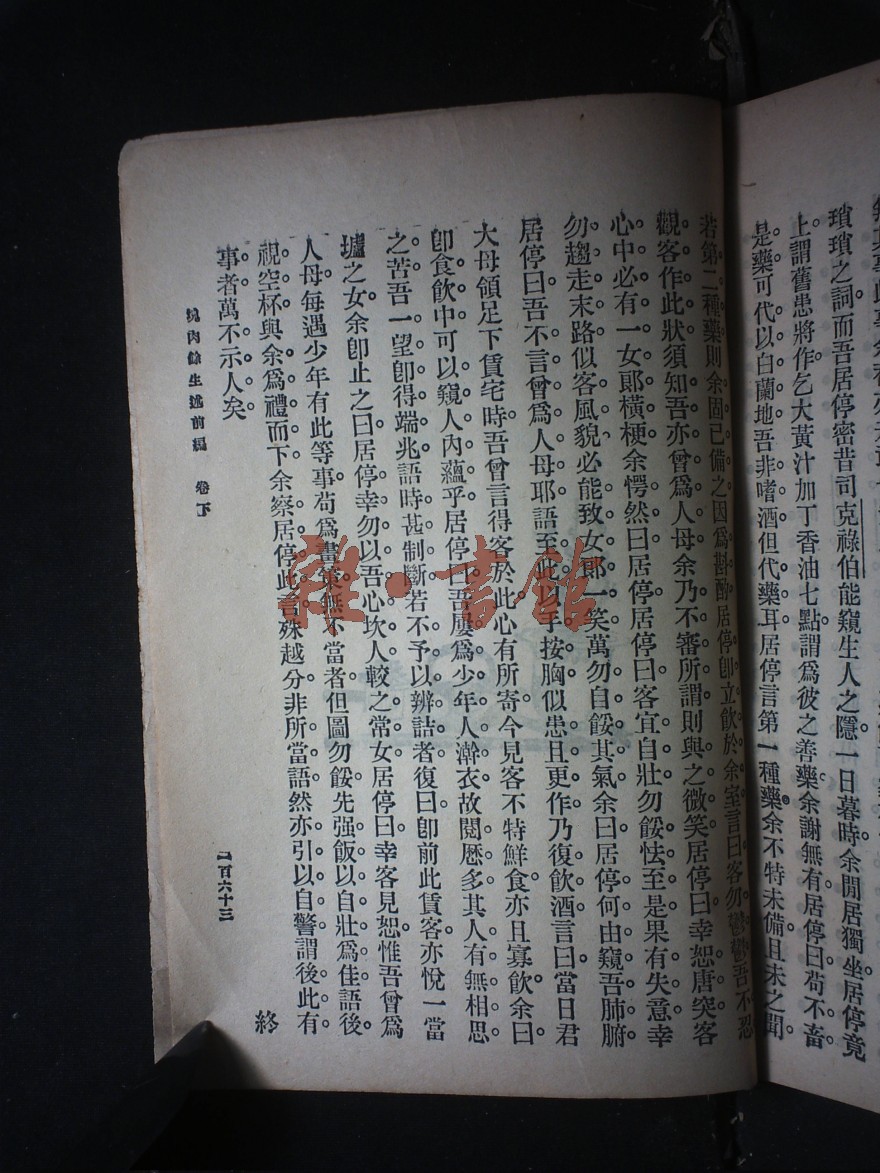 瑣瑣之詞。而吾居停密昔司克祿伯能窺生人之隱。一日暮時。余閒居獨坐。居停竟
上。謂舊患將作。乞大黃汁加丁香油七點。謂爲彼之善藥。余謝無有。居停曰。苟不畜
是藥。可代以白蘭地。吾非嗜酒。但代藥耳。居停言第一種藥。余不特未備。且未之聞。
若第二種藥。則余固已備之。因爲斟酌。居停卽立飮於余室。言曰。客勿鬱鬱。吾不忍
觀客作此狀。須知吾亦曾爲人母。余乃不審所謂。則與之微笑。居停曰。幸恕唐突。客
心中必有一女郞橫梗。余愕然曰。居停。居停曰。客宜自壯。勿餒怯至是。果有失意。幸
勿趨走末路。似客風貌。必能致女郞一笑。萬勿自餒其氣。余曰。居停何由窺吾肺腑。
居停曰。吾不言曾爲人母耶。語至此。以手按胸。似患且更作。乃復飮酒言曰。當日君
大母領足下賃宅時。吾曾言得客於此。心有所寄。今見客不特鮮食。亦且寡飮。余曰。
卽食飮中可以窺人內蘊乎。居停曰。吾屢爲少年人澣衣。故閱歷多。其人有無相思
之苦。吾一望卽得端兆。語時甚制斷。若不予以辨詰者。復曰。卽前此賃客。亦悅一當
壚之女。余卽止之曰。居停幸勿以吾心坎人較之常女。居停曰。幸客見恕。惟吾曾爲
人母。每遇少年有此等事。苟爲畫策。無不當者。但圖勿餒。先强飯以自壯爲佳。語後。
視空杯。與余爲禮而下。余察居停此言。殊越分非所當語。然亦引以自警。謂後此有
事者。萬不示人矣。
終
塊肉餘生述前編 卷下
一百六十三
雜·書館